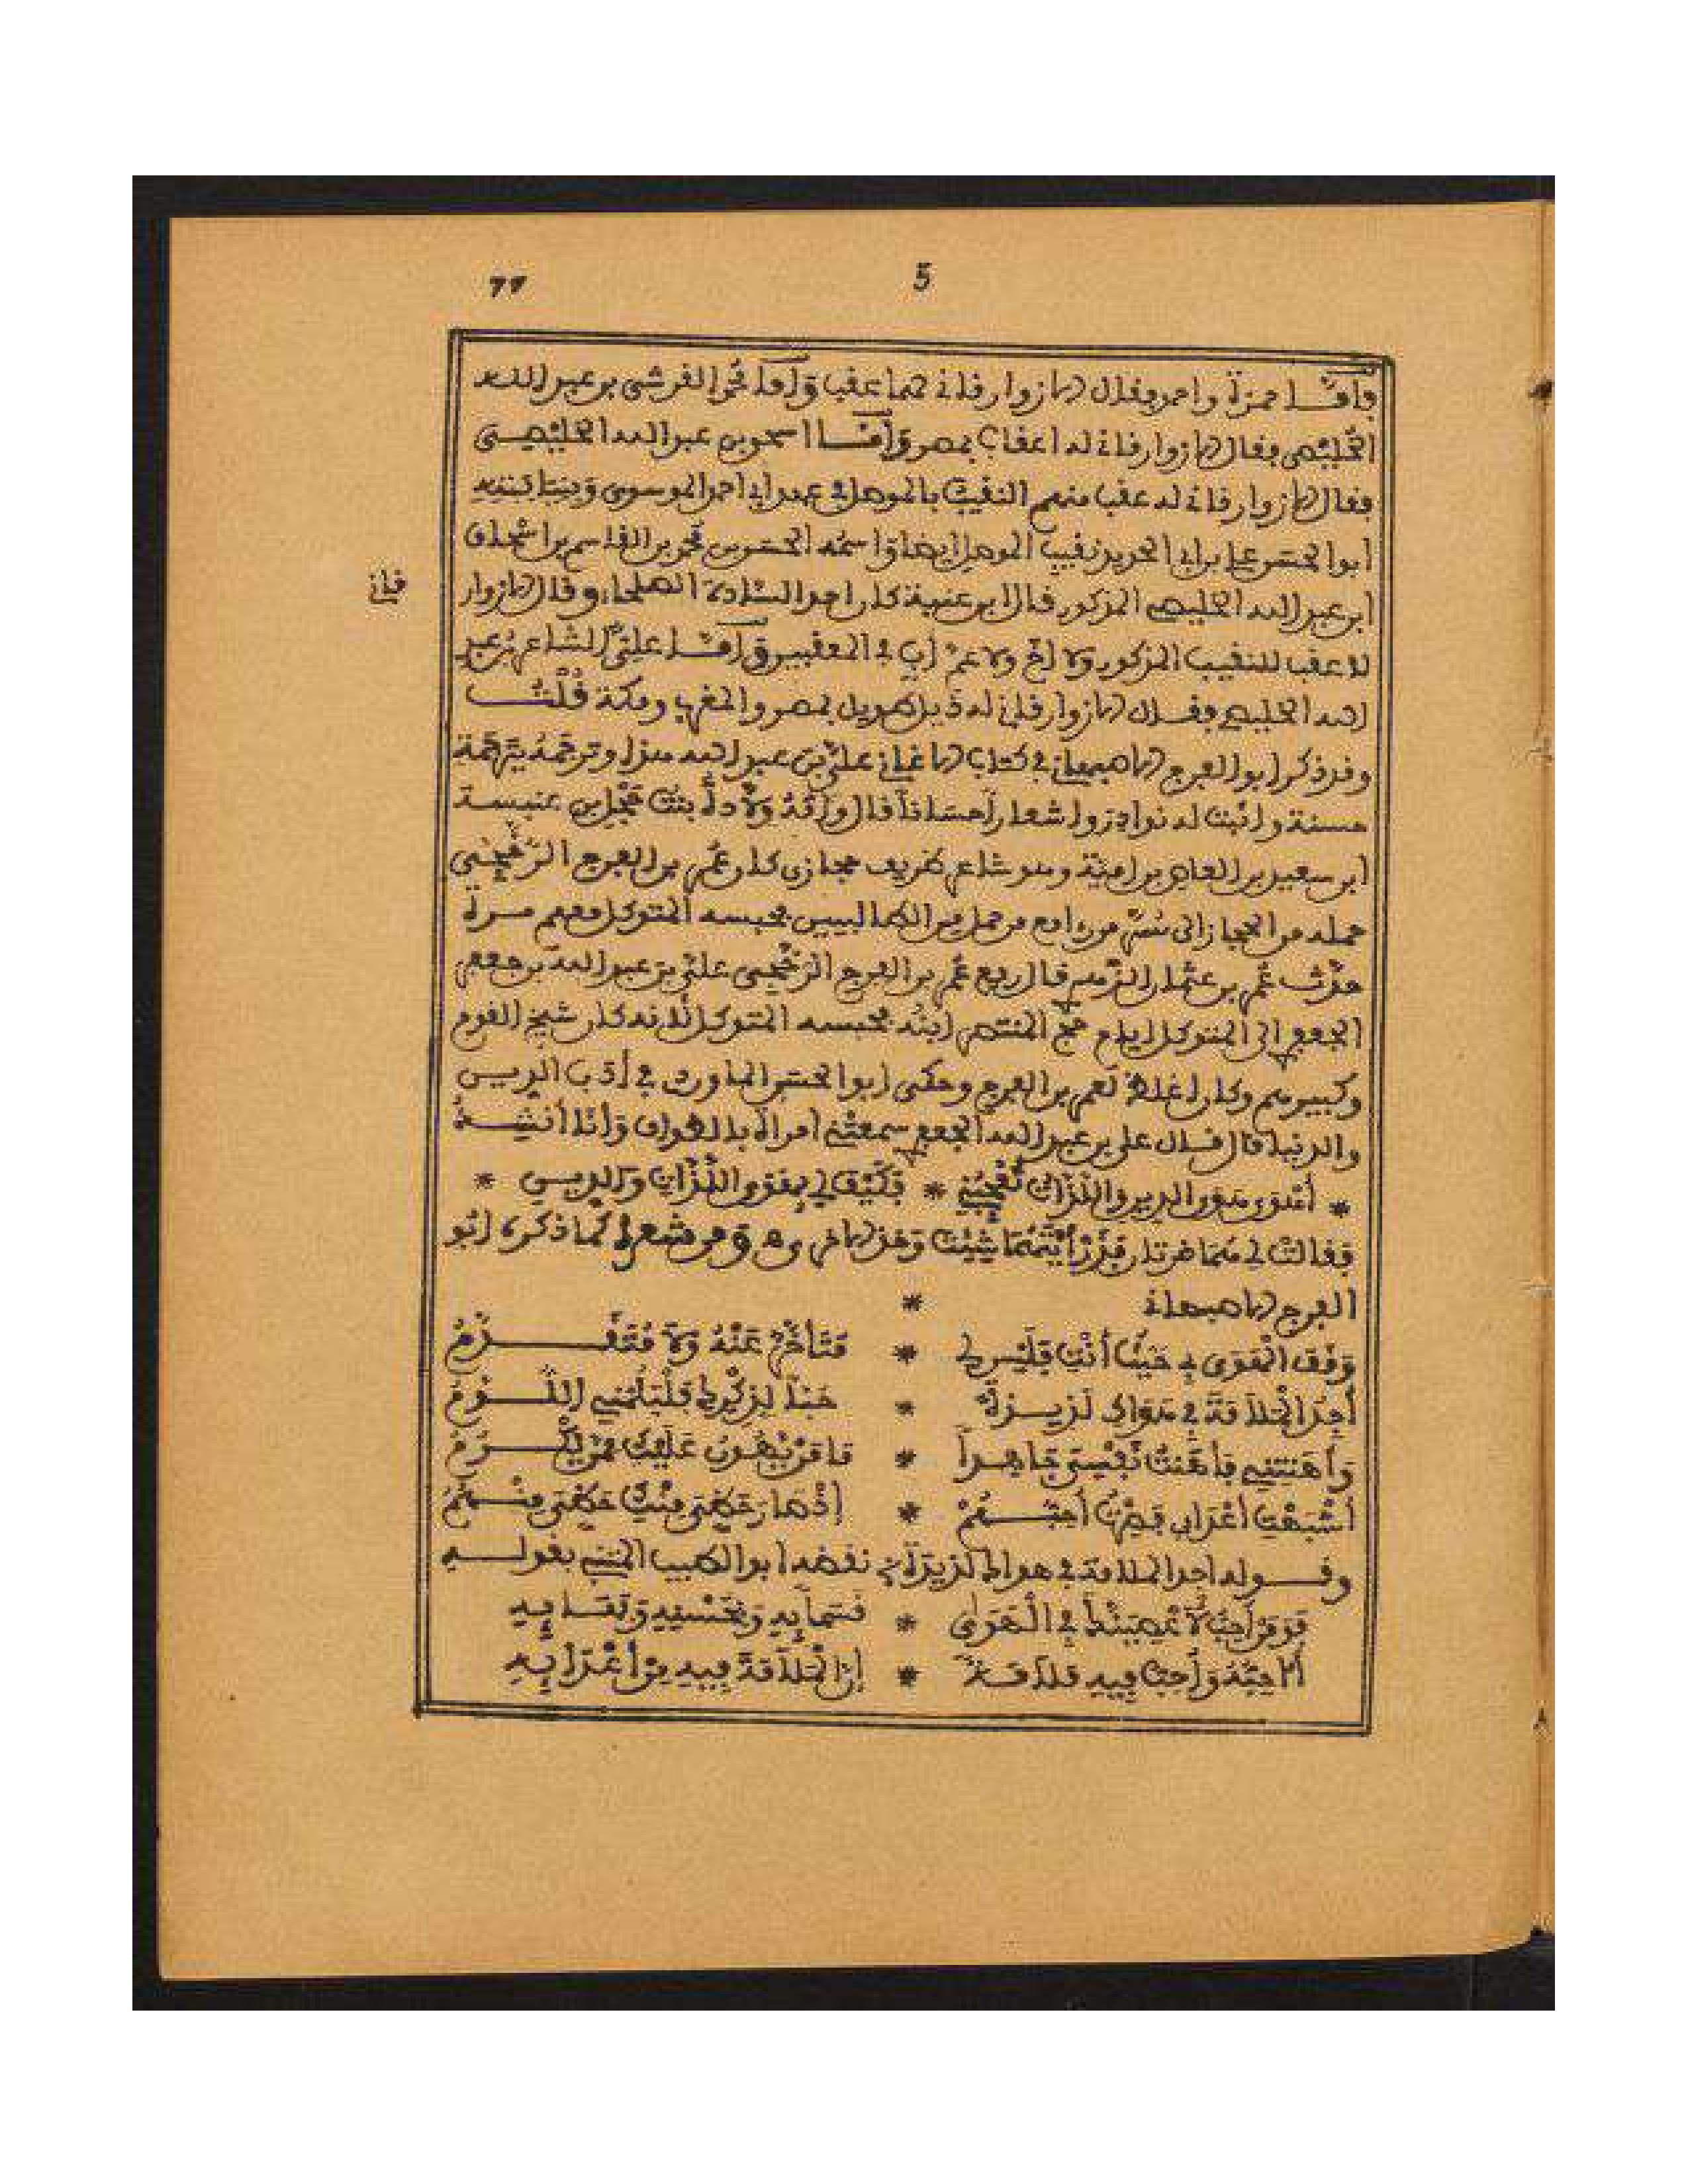 5
٦٦
فأمّا حمزة واحمد فقال الازوارقاني لهما عقب وأما محمد القرشي بن عبد الله
الخليصي فقال الازوارقاني له اعقاب بمصر وأمّا اسحق بن عبد الله الخليصي
فقال الازوارقاني له عقب منهم النقيب بالموصل في عهد ابي احمد الموسوي وبنيابته
ابو الحسن علي بن ابي الحديد نقيب الموصل ايضا واسمه الحسن بن محمد بن القاسم بن اسحاق
ابن عبد الله الخليصي المذكور قال ابن عنبة كان احد السّادة الصلحاء وقال الازوار
قاني
لا عقب للنقيب المذكور ولا أخ ولا عمّ أي في المعقبين وأمّا عليّ الشاعر بن عبد
الله الخليصي فقال الازوارقاني له ذيل طويل بمصر والمغرب ومكة قُلْتُ
وقد ذكر ابو الفرج الاصبهاني في كتاب الاغاني عليّ بن عبد الله هذا وترجمه بترجمة
حسنة واثبت له نوادر واشعاراً حسانا قال وأمّه ولّادة بنت محمد بن عنبسة
ابن سعيد بن العاص بن امية وهو شاعر ظريف حجازي كان عمر بن الفرج الرّخجي
حمله من الحجاز الى سرّ من رأى مع من حمل من الطالبيين فحبسه المتوكل معهم مدة
حدّث عمر بن عثمان الزهري قال رفع عمر بن الفرج الرّخجي عليّ بن عبد الله بن جعفر
الجعفري الى المتوكل ايام حجّ المنتصر ابنه فحبسه المتوكل لأنه كان شيخ القوم
وكبيرهم وكان اغلظ لعمر بن الفرج وحكى ابو الحسن الماوردي في أدب الدين
والدنيا قال قال علي بن عبد الله الجعفري سمعتني امرأة بالطواف وأنا أنشد
* أهوى هوى الدين واللذات تُعجبني * فكيف لي بهوى اللّذّات والدين *
فقالت لي هما ضرتان فذر أيّتهما شئت وخذ الاخرى ومن شعره كما ذكره ابو
الفرج الاصبهاني *
وقف الهوى بي حيث أنت فليس لي * متأخّر عنه ولا متقدّم
أجد الملامة في هواك لذيذة * حبّا لذكرك فليلمني اللّوّم
وأهنتني فأهنت نفسي جاهداً * ما من يهون عليك ممن يكرم
أشبهت أعدائي فصرت أحبّهم * إذ صار حظّي منك حظّي منهم
وقوله اجد الملامة في هواك لذيذة نقضه ابو الطيب المتنبي بقوله
فومن أحبّ لأعصينّك في الهوى * قسما به وبحسنه وبهائه
أأحبّه وأحبّ فيه ملامة * إن الملامة فيه من أعدائه